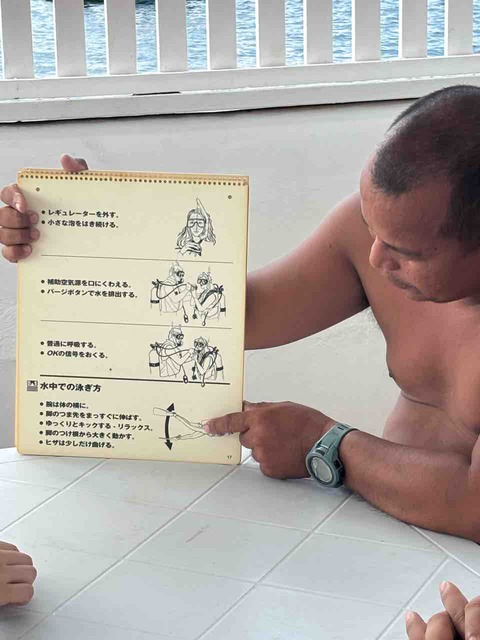 ● レギュレーターを外す。
● 小さな泡をはき続ける。
● 補助空気源を口にくわえる。
● パージボタンで水を排出する。
● 普通に呼吸する。
● OKの信号をおくる。
水中での泳ぎ方
● 腕は体の横に。
● 脚のつま先をまっすぐに伸ばす。
● ゆっくりとキックする - リラックス。
● 脚のつけ根から大きく動かす。
● ヒザは少しだけ曲げる。
17